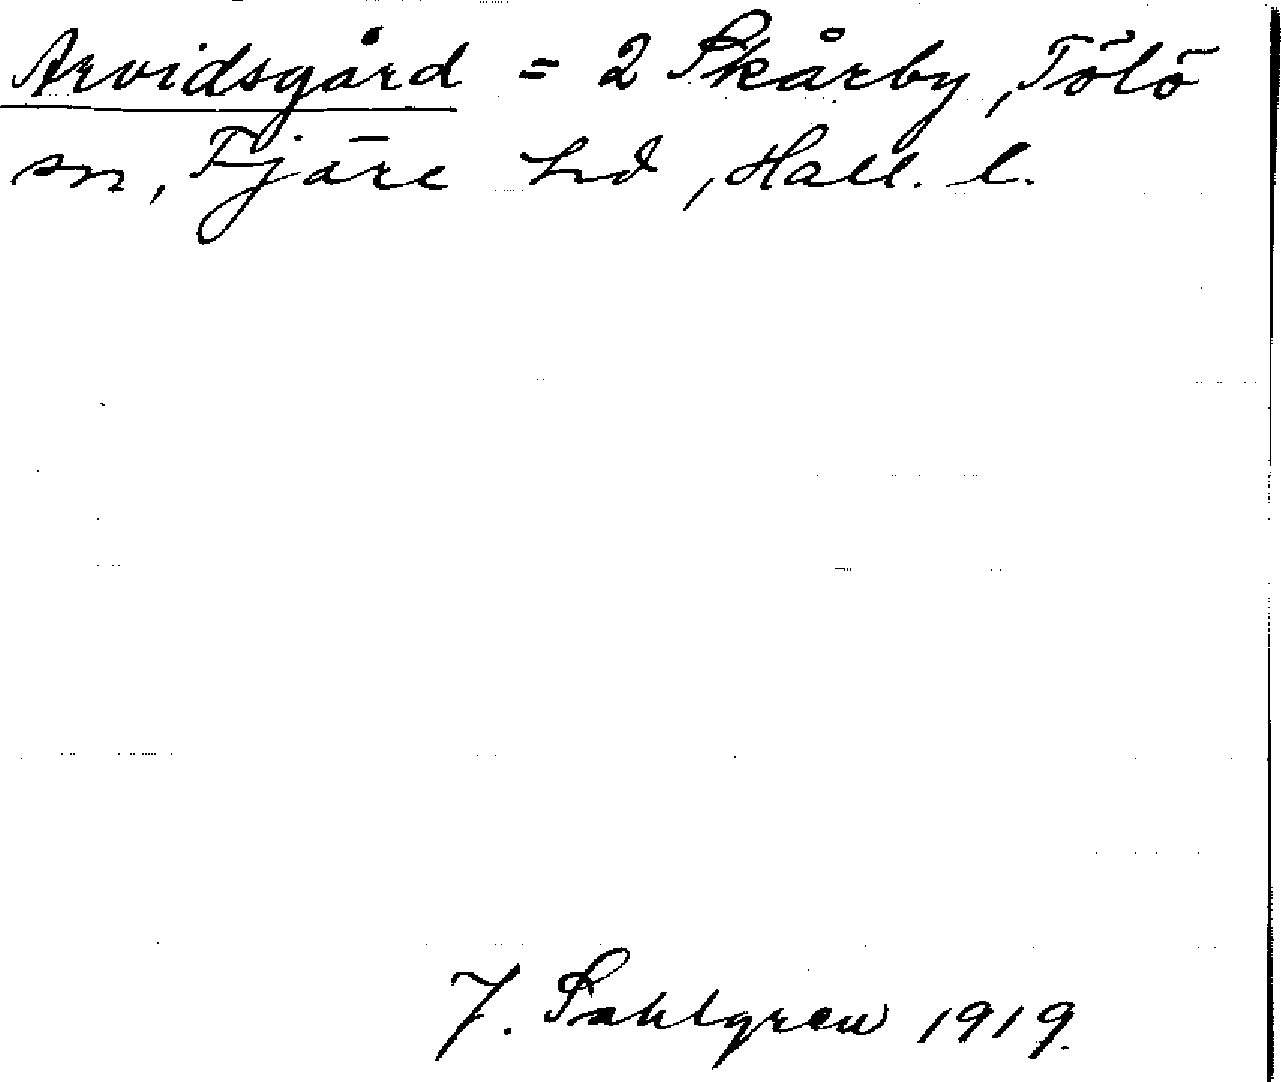 Arvidsgård = 2 Skårby, Tölö
sn, Fjäre hd, Hall. l.
J. Sahlgren 1919.